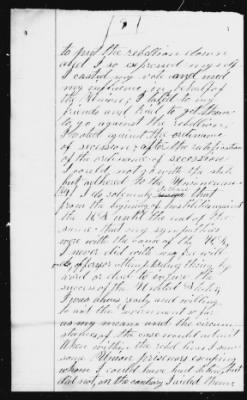 181
to put the rebellion down
and I so expressed myself
I casted my vote and used
my influence in behalf of
the Union, I talked to my
friends and tried to get them
to go against the rebellion
I voted against the ordinance
of secession; after the ratification
of the ordinance of secession
I could not go with the state
but adhered to the Union cause
I do solemnly declare that
from the beginning of hostilities against
the U.S. until the end of the
same that my sympathies
were with the cause of the U.S.
I never did with my free will
offer or attempt to do anything by
word or deed to injure the
success of the United States
I was always ready and willing
to aid the Government so far
as my means and the circum-
stances of the case would admit
When within the rebel lines I saw
some Union prisoners escaping
whom I could have had taken but
did not, on the contrary I aided them